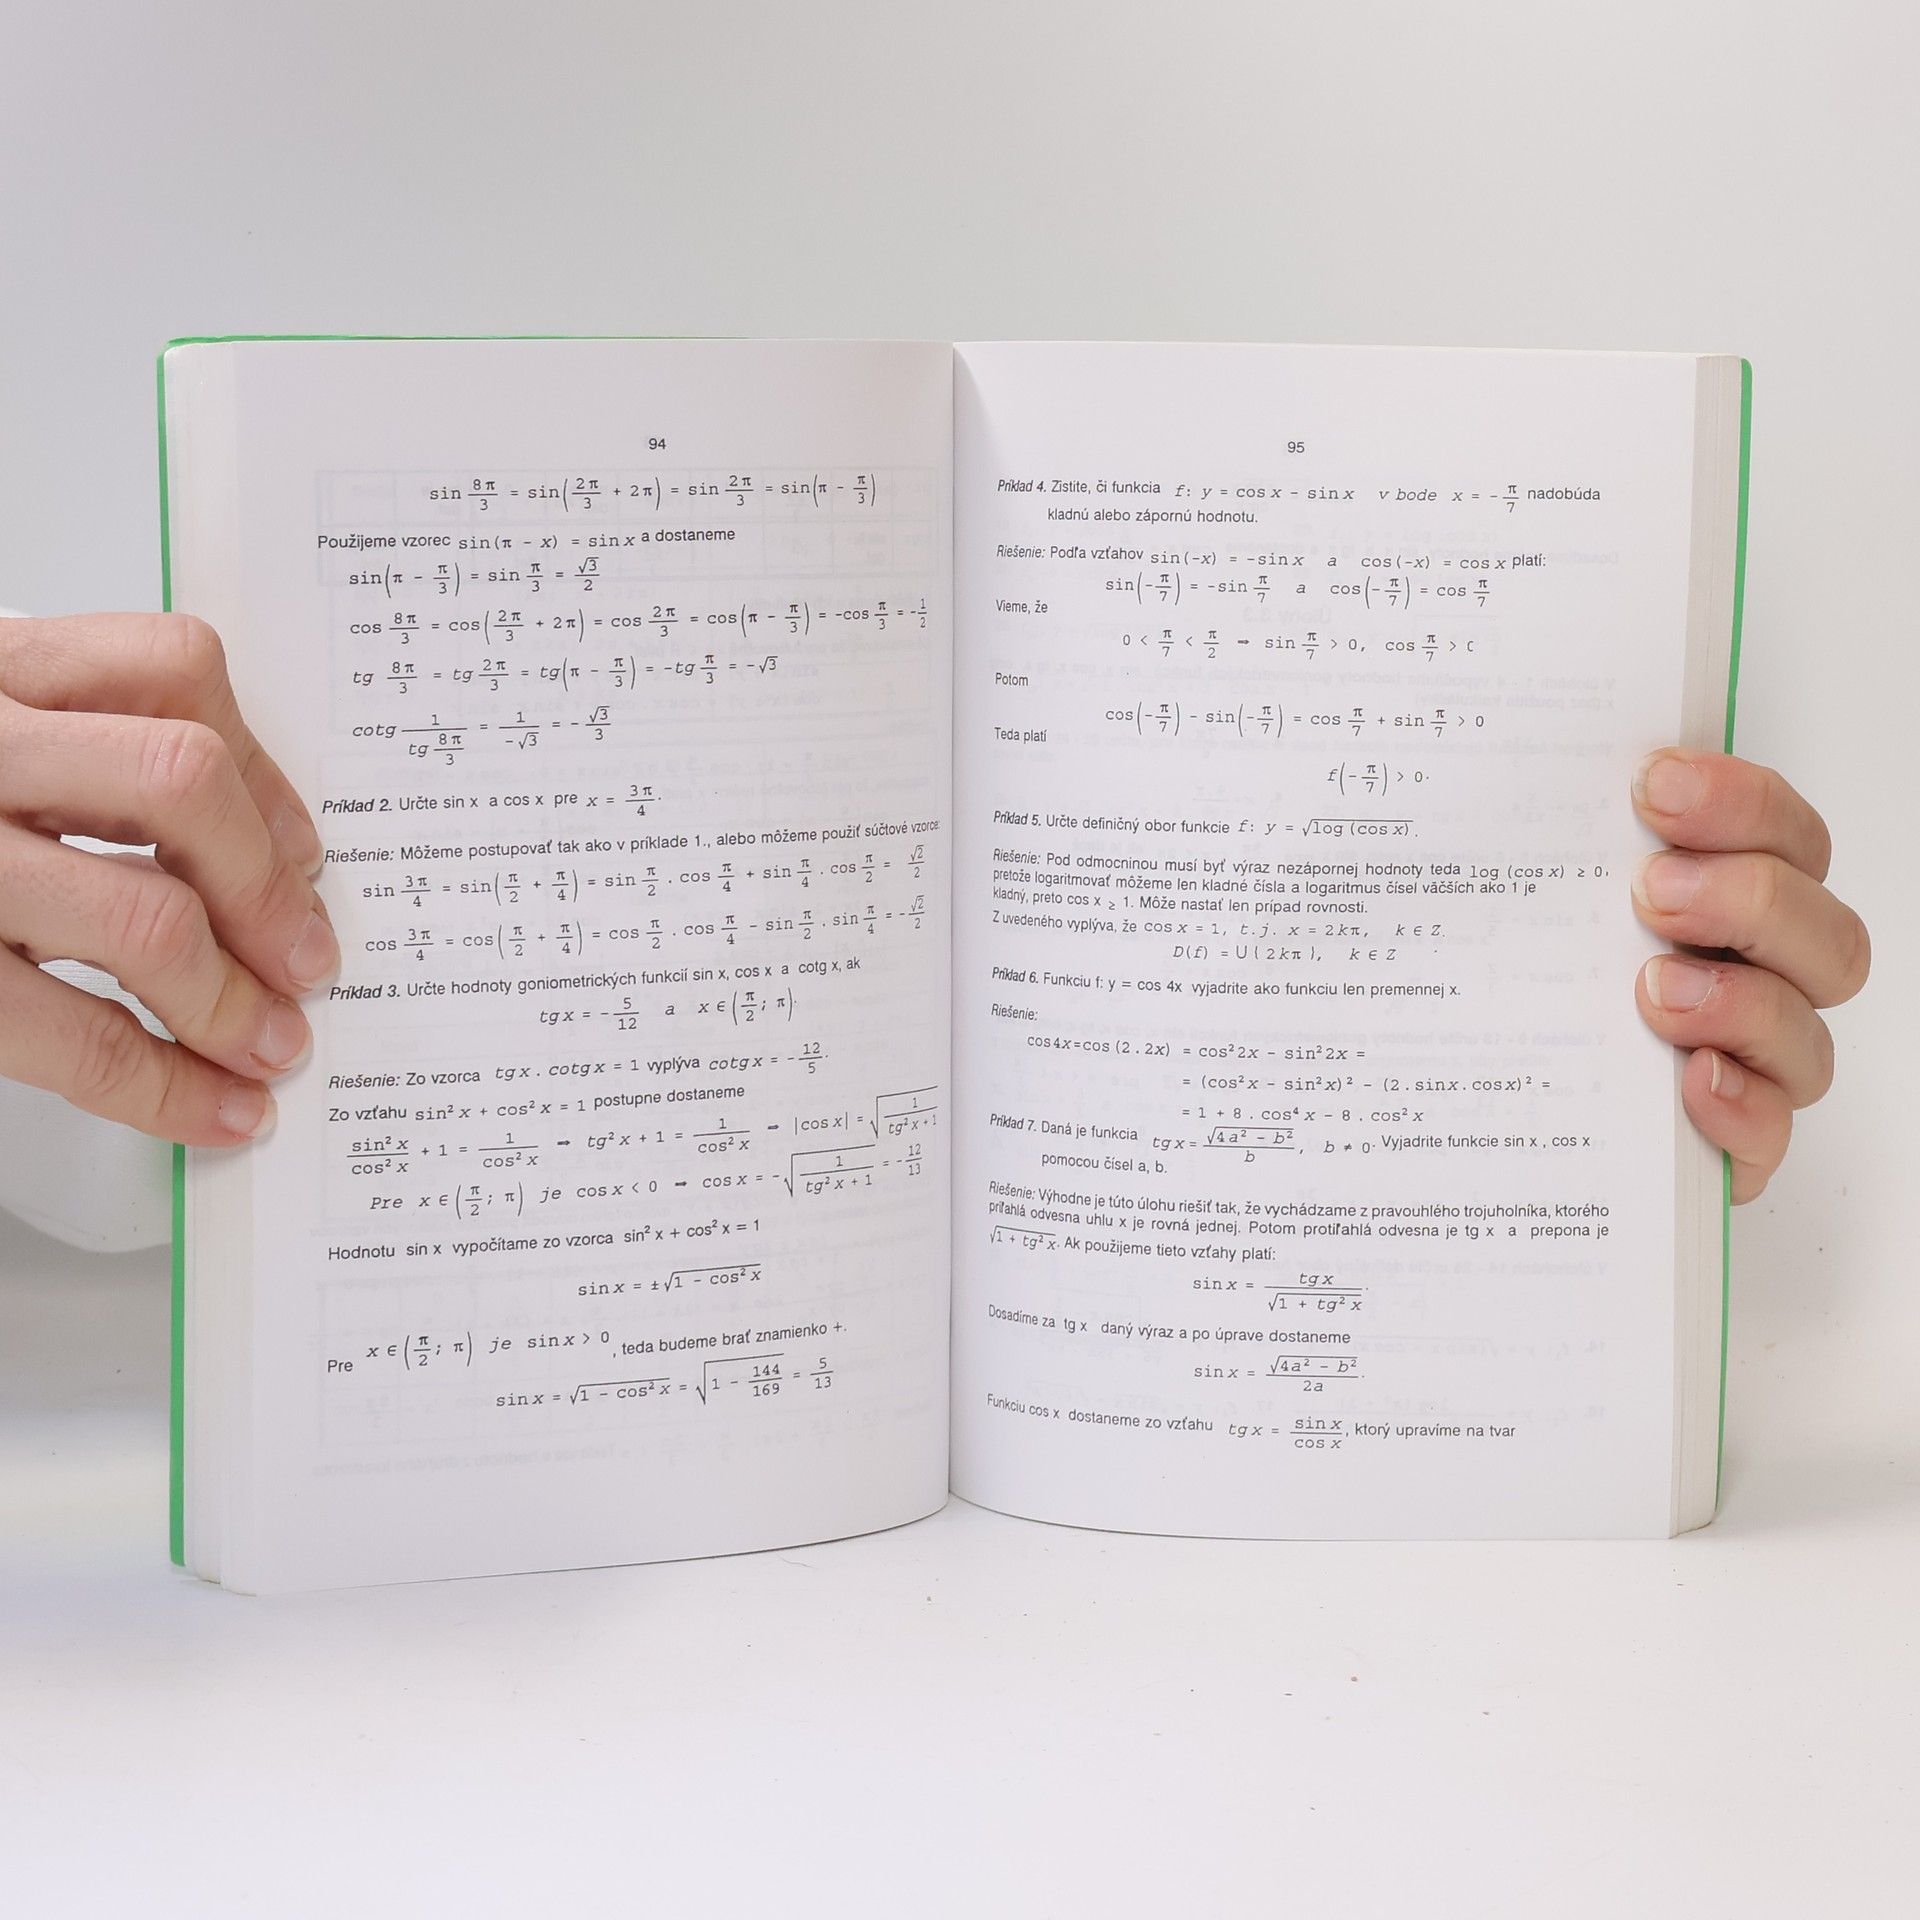 94
sin 8π/3 = sin(2π/3 + 2π) = sin 2π/3 = sin(π - π/3)
Použijeme vzorec sin(π - x) = sin x a dostaneme
sin(π - π/3) = sin π/3 = √3/2
cos 8π/3 = cos(2π/3 + 2π) = cos 2π/3 = cos(π - π/3) = -cos π/3 = -1/2
tg 8π/3 = tg 2π/3 = tg(π - π/3) = -tg π/3 = -√3
cotg 1/(tg 8π/3) = 1/(-√3) = -√3/3
Príklad 2. Určte sin x a cos x pre x = 3π/4.
Riešenie: Môžeme postupovať tak ako v príklade 1., alebo môžeme použiť súčtové vzorce:
sin 3π/4 = sin(π/2 + π/4) = sin π/2 . cos π/4 + sin π/4 . cos π/2 = √2/2
cos 3π/4 = cos(π/2 + π/4) = cos π/2 . cos π/4 - sin π/2 . sin π/4 = -√2/2
Príklad 3. Určte hodnoty goniometrických funkcií sin x, cos x a cotg x, ak
tg x = -5/12 a x ∈ (π/2; π).
Riešenie: Zo vzorca tg x . cotg x = 1 vyplýva cotg x = -12/5.
Zo vzťahu sin² x + cos² x = 1 postupne dostaneme
sin² x/cos² x + 1 = 1/cos² x → tg² x + 1 = 1/cos² x → |cos x| = √(1/(tg² x + 1))
Pre x ∈ (π/2; π) je cos x < 0 → cos x = -√(1/(tg² x + 1)) = -12/13
Hodnotu sin x vypočítame zo vzorca sin² x + cos² x = 1
sin x = ±√(1 - cos² x)
Pre x ∈ (π/2; π) je sin x > 0, teda budeme brať znamienko +.
sin x = √(1 - cos² x) = √(1 - 144/169) = 5/13
95
Príklad 4. Zistite, či funkcia f: y = cos x - sin x v bode x = -π/7 nadobúda
kladnú alebo zápornú hodnotu.
Riešenie: Podľa vzťahov sin(-x) = -sin x a cos(-x) = cos x platí:
sin(-π/7) = -sin π/7 a cos(-π/7) = cos π/7
Vieme, že
0 < π/7 < π/2 → sin π/7 > 0, cos π/7 > 0
Potom
cos(-π/7) - sin(-π/7) = cos π/7 + sin π/7 > 0
Teda platí
f(-π/7) > 0.
Príklad 5. Určte definičný obor funkcie f: y = √(log (cos x)).
Riešenie: Pod odmocninou musí byť výraz nezápornej hodnoty teda log (cos x) ≥ 0,
pretože logaritmovať môžeme len kladné čísla a logaritmus čísel väčších ako 1 je
kladný, preto cos x ≥ 1. Môže nastať len prípad rovnosti.
Z uvedeného vyplýva, že cos x = 1, t.j. x = 2kπ, k ∈ Z.
D(f) = U { 2kπ }, k ∈ Z
Príklad 6. Funkciu f: y = cos 4x vyjadrite ako funkciu len premennej x.
Riešenie:
cos4x=cos (2 . 2x) = cos² 2x - sin² 2x =
= (cos² x - sin² x)² - (2 . sinx . cosx)² =
= 1 + 8 . cos⁴ x - 8 . cos² x
Príklad 7. Daná je funkcia tg x = √(4a² - b²)/b, b ≠ 0. Vyjadrite funkcie sin x , cos x
pomocou čísel a, b.
Riešenie: Výhodne je túto úlohu riešiť tak, že vychádzame z pravouhlého trojuholníka, ktorého
priľahlá odvesna uhlu x je rovná jednej. Potom protiľahlá odvesna je tg x a prepona je
√(1 + tg² x). Ak použijeme tieto vzťahy platí:
sin x = tg x/√(1 + tg² x).
Dosadíme za tg x daný výraz a po úprave dostaneme
sin x = √(4a² - b²)/2a.
Funkciu cos x dostaneme zo vzťahu tg x = sin x/cos x, ktorý upravíme na tvar